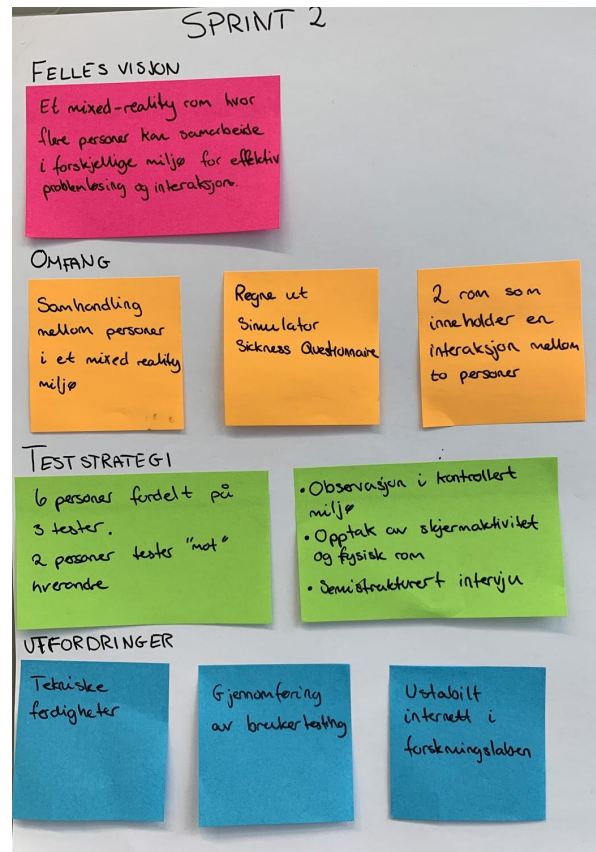 SPRINT 2
FELLES VISJON
Et mixed-reality rom hvor
flere personer kan samarbeide
i forskjellige miljø for effektiv
problemløsing og interaksjon.
OMFANG
Samhandling
mellom personer
i et mixed reality
miljø
Regne ut
Simulator
Sickness Questionnaire
2 rom som
inneholder en
interaksjon mellom
to personer
TESTSTRATEGI
6 personer fordelt på
3 tester.
2 personer tester "mot"
hverandre
• Observasjon i kontrollert
miljø
• Opptak av skjermaktivitet
og fysisk rom
• Semistrukturert intervju
UTFORDRINGER
Tekniske
ferdigheter
Gjennomføring
av brukertesting
Ustabilt
internett i
forskningslaben